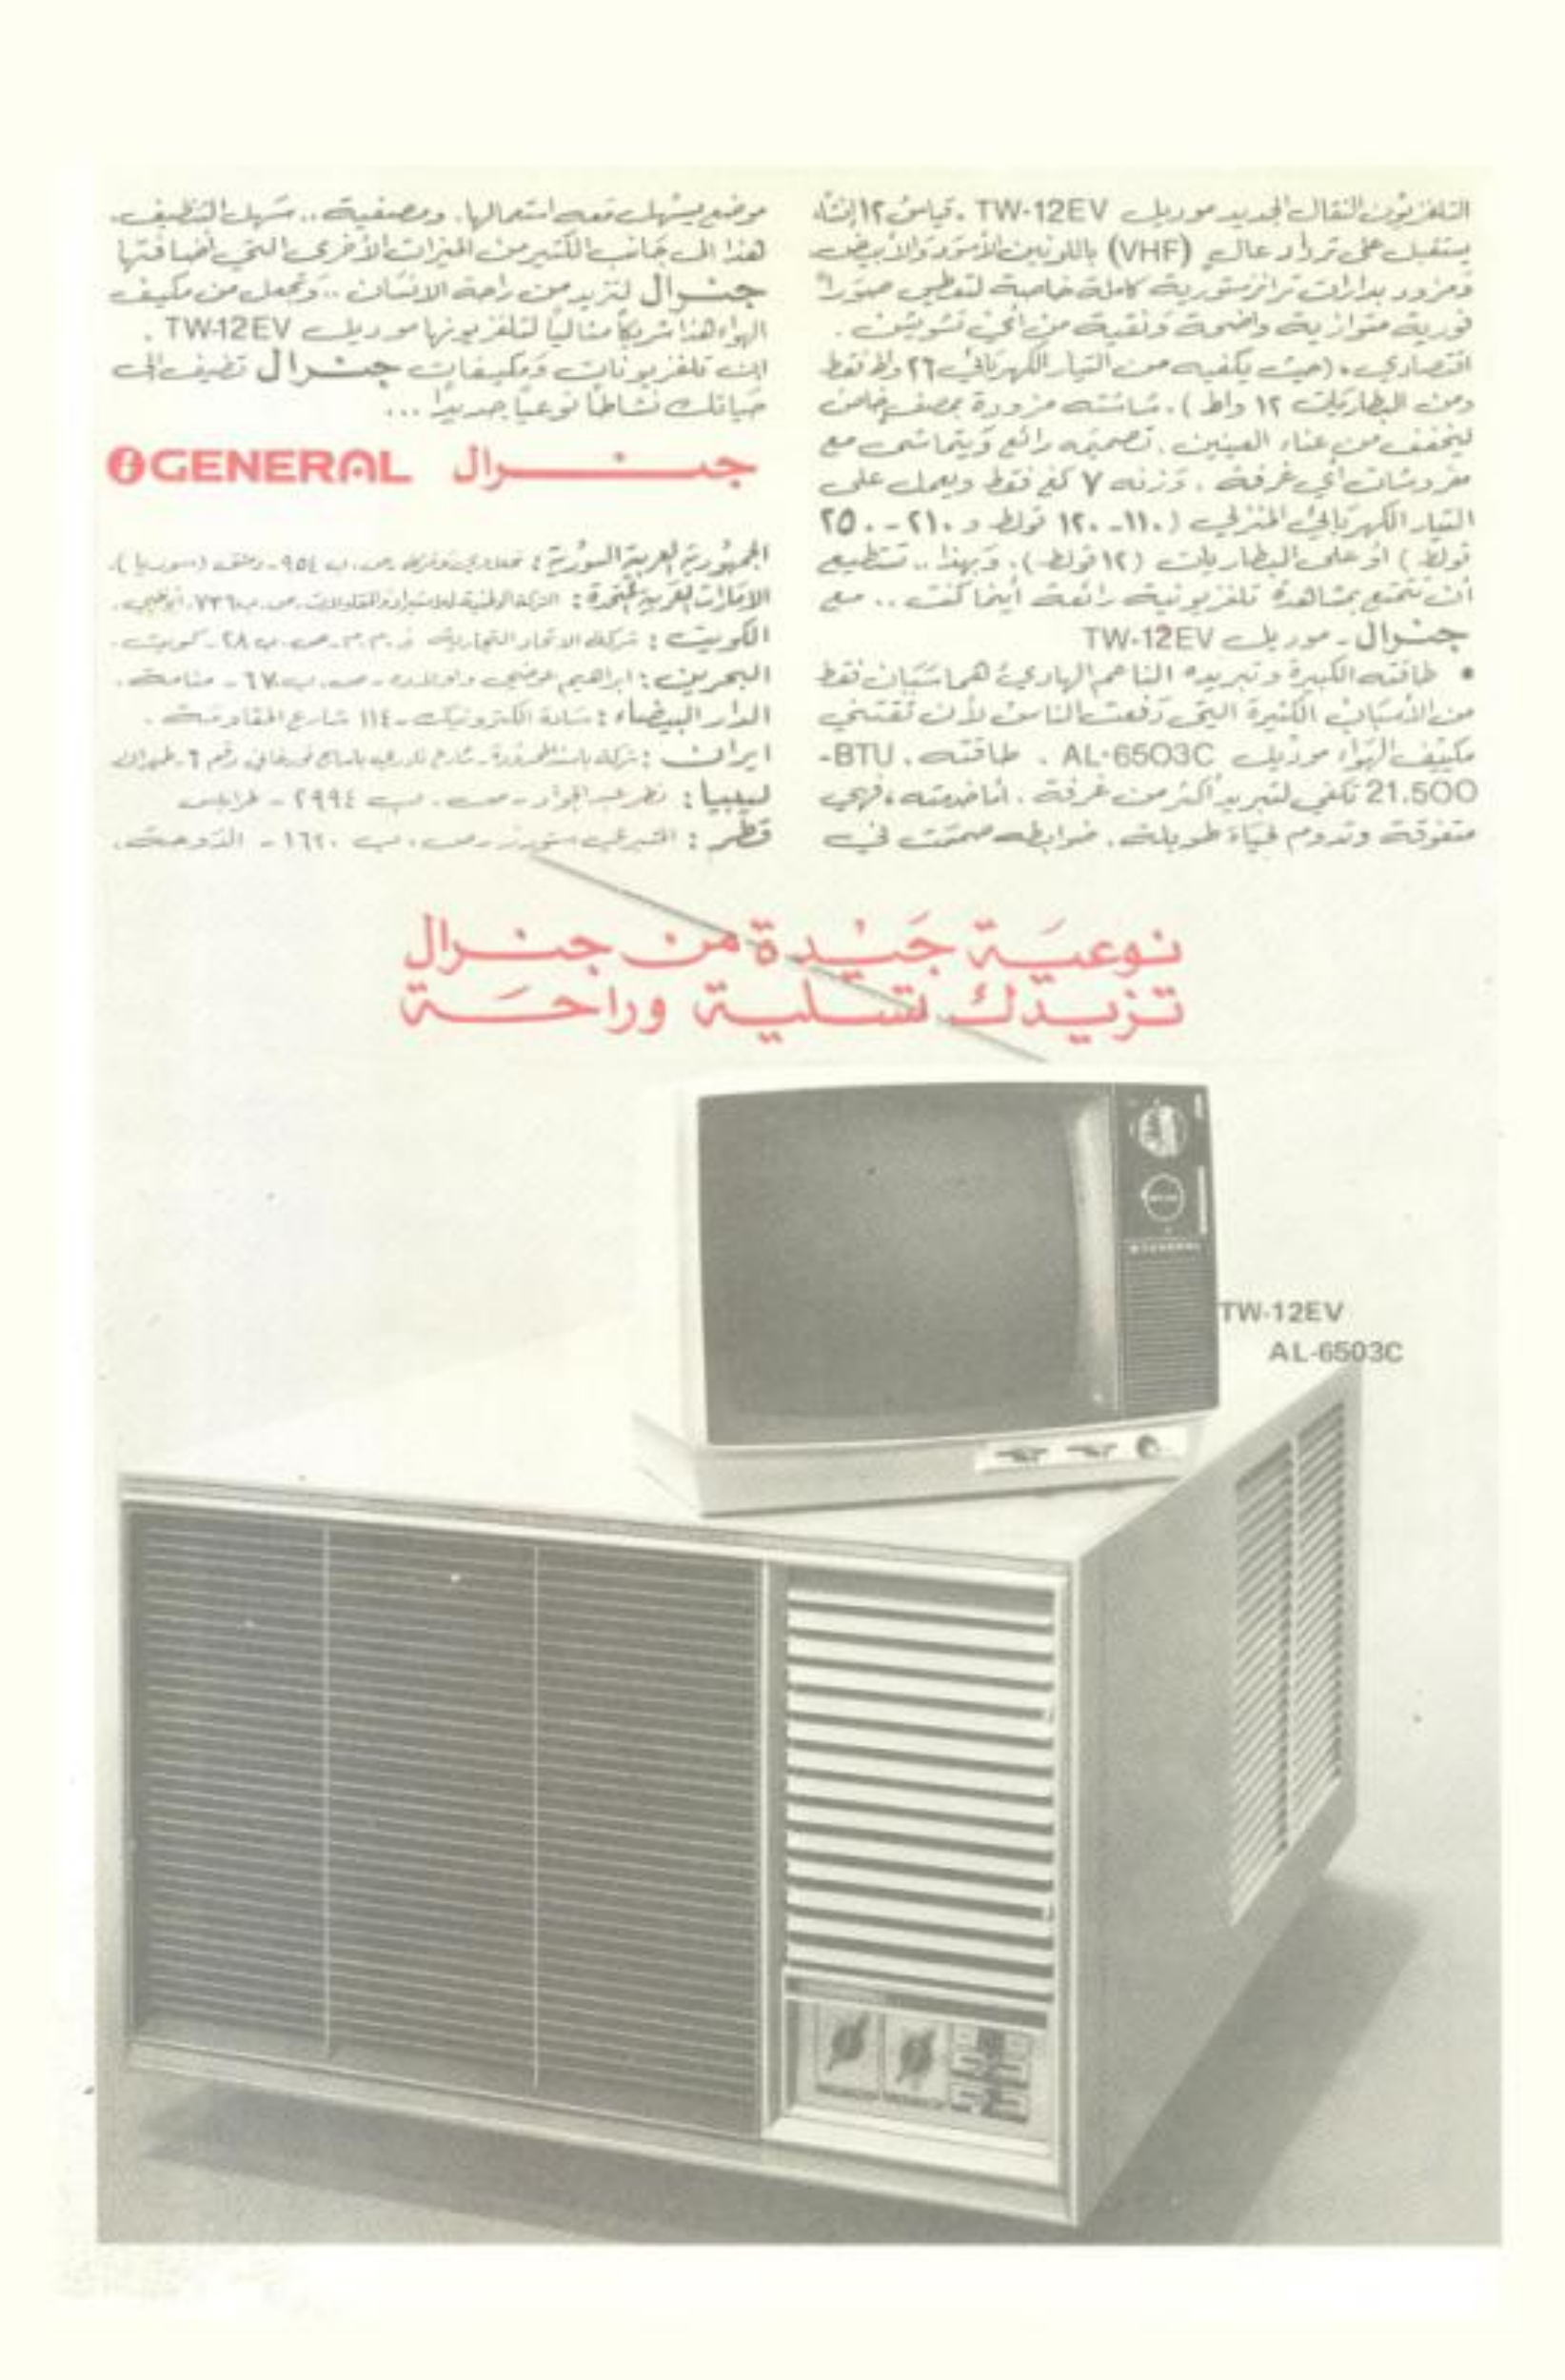 التلفزيون النقال الجديد موديل TW-12EV . قياس ١٢ إنشاً،
يستقبل على تردد عالٍ (VHF) باللونين الأسود والأبيض
ومزود بدارات ترانزستورية كاملة خاصة لتعطي صوراً
فورية متوازية واضحة ونقية من أي تشويش .
اقتصادي ، (حيث يكفيه من التيار الكهربائي ٢٦ واط فقط
ومن البطاريات ١٢ واط ) . شاشته مزودة بمصفٍ خاص
ليخفف من عناء العينين . تصميمه رائع ويتماشى مع
مفروشات أي غرفة . وزنه ٧ كغ فقط ويعمل على
التيار الكهربائي المنزلي ( ١١٠ - ١٢٠ فولط و ٢١٠ - ٢٥٠
فولط ) أو على البطاريات (١٢ فولط ) . وبهذا .. تستطيع
أن تتمتع بمشاهدة تلفزيونية رائعة أينما كنت .. مع
جنرال - موديل TW-12EV
• طاقته الكبيرة وتبريده الناعم الهادئ هما سببان فقط
من الأسباب الكثيرة التي دفعت الناس لأن تقتني
مكيّف الهواء موديل AL-6503C . طاقته . BTU-
21.500 تكفي لتبريد أكثر من غرفة . أما خدمته ، فهي
متفوقة وتدوم لحياة طويلة . ضوابطه صممت في
موضع يسهل معه استعمالها . ومصفيه .. سهل التنظيف .
هذا الى جانب الكثير من الميزات الأخرى التي أضافتها
جنرال لتزيد من راحة الانسان .. وتجعل من مكيف
الهواء هذا شريكاً مثالياً لتلفزيونها موديل TW-12EV .
ان تلفزيونات ومكيفات جنرال تضيف الى
حياتك نشاطاً نوعياً جديداً ...
GENERAL جنرال
الجمهورية العربية السورية : ص . ب ٩٥٤ - دمشق (سوريا ) .
الامارات العربية المتحدة : الشركة الوطنية للاستيراد والمقاولات . ص . ب ٧٣٦ . أبوظبي .
الكويت : شركة الاتحاد التجارية ذ . م . م . ص . ب ٢٨ - كويت .
البحرين : ابراهيم عوضي واولاده - ص . ب ٦٧ - منامة .
الدار البيضاء : سادة الكترونيك - ١١٤ شارع المقاومة .
ايران : شركة المحدودة - شارع نادري رقم ٦ - طهران
ليبيا : نصر عبد الجواد - ص . ب ٢٩٩٤ - طرابلس
قطر : ستورز - ص . ب ١٦٢٠ - الدوحة .
نوعية جيدة من جنرال
تزيدك تسلية وراحة
GENERAL
TW-12EV
AL-6503C